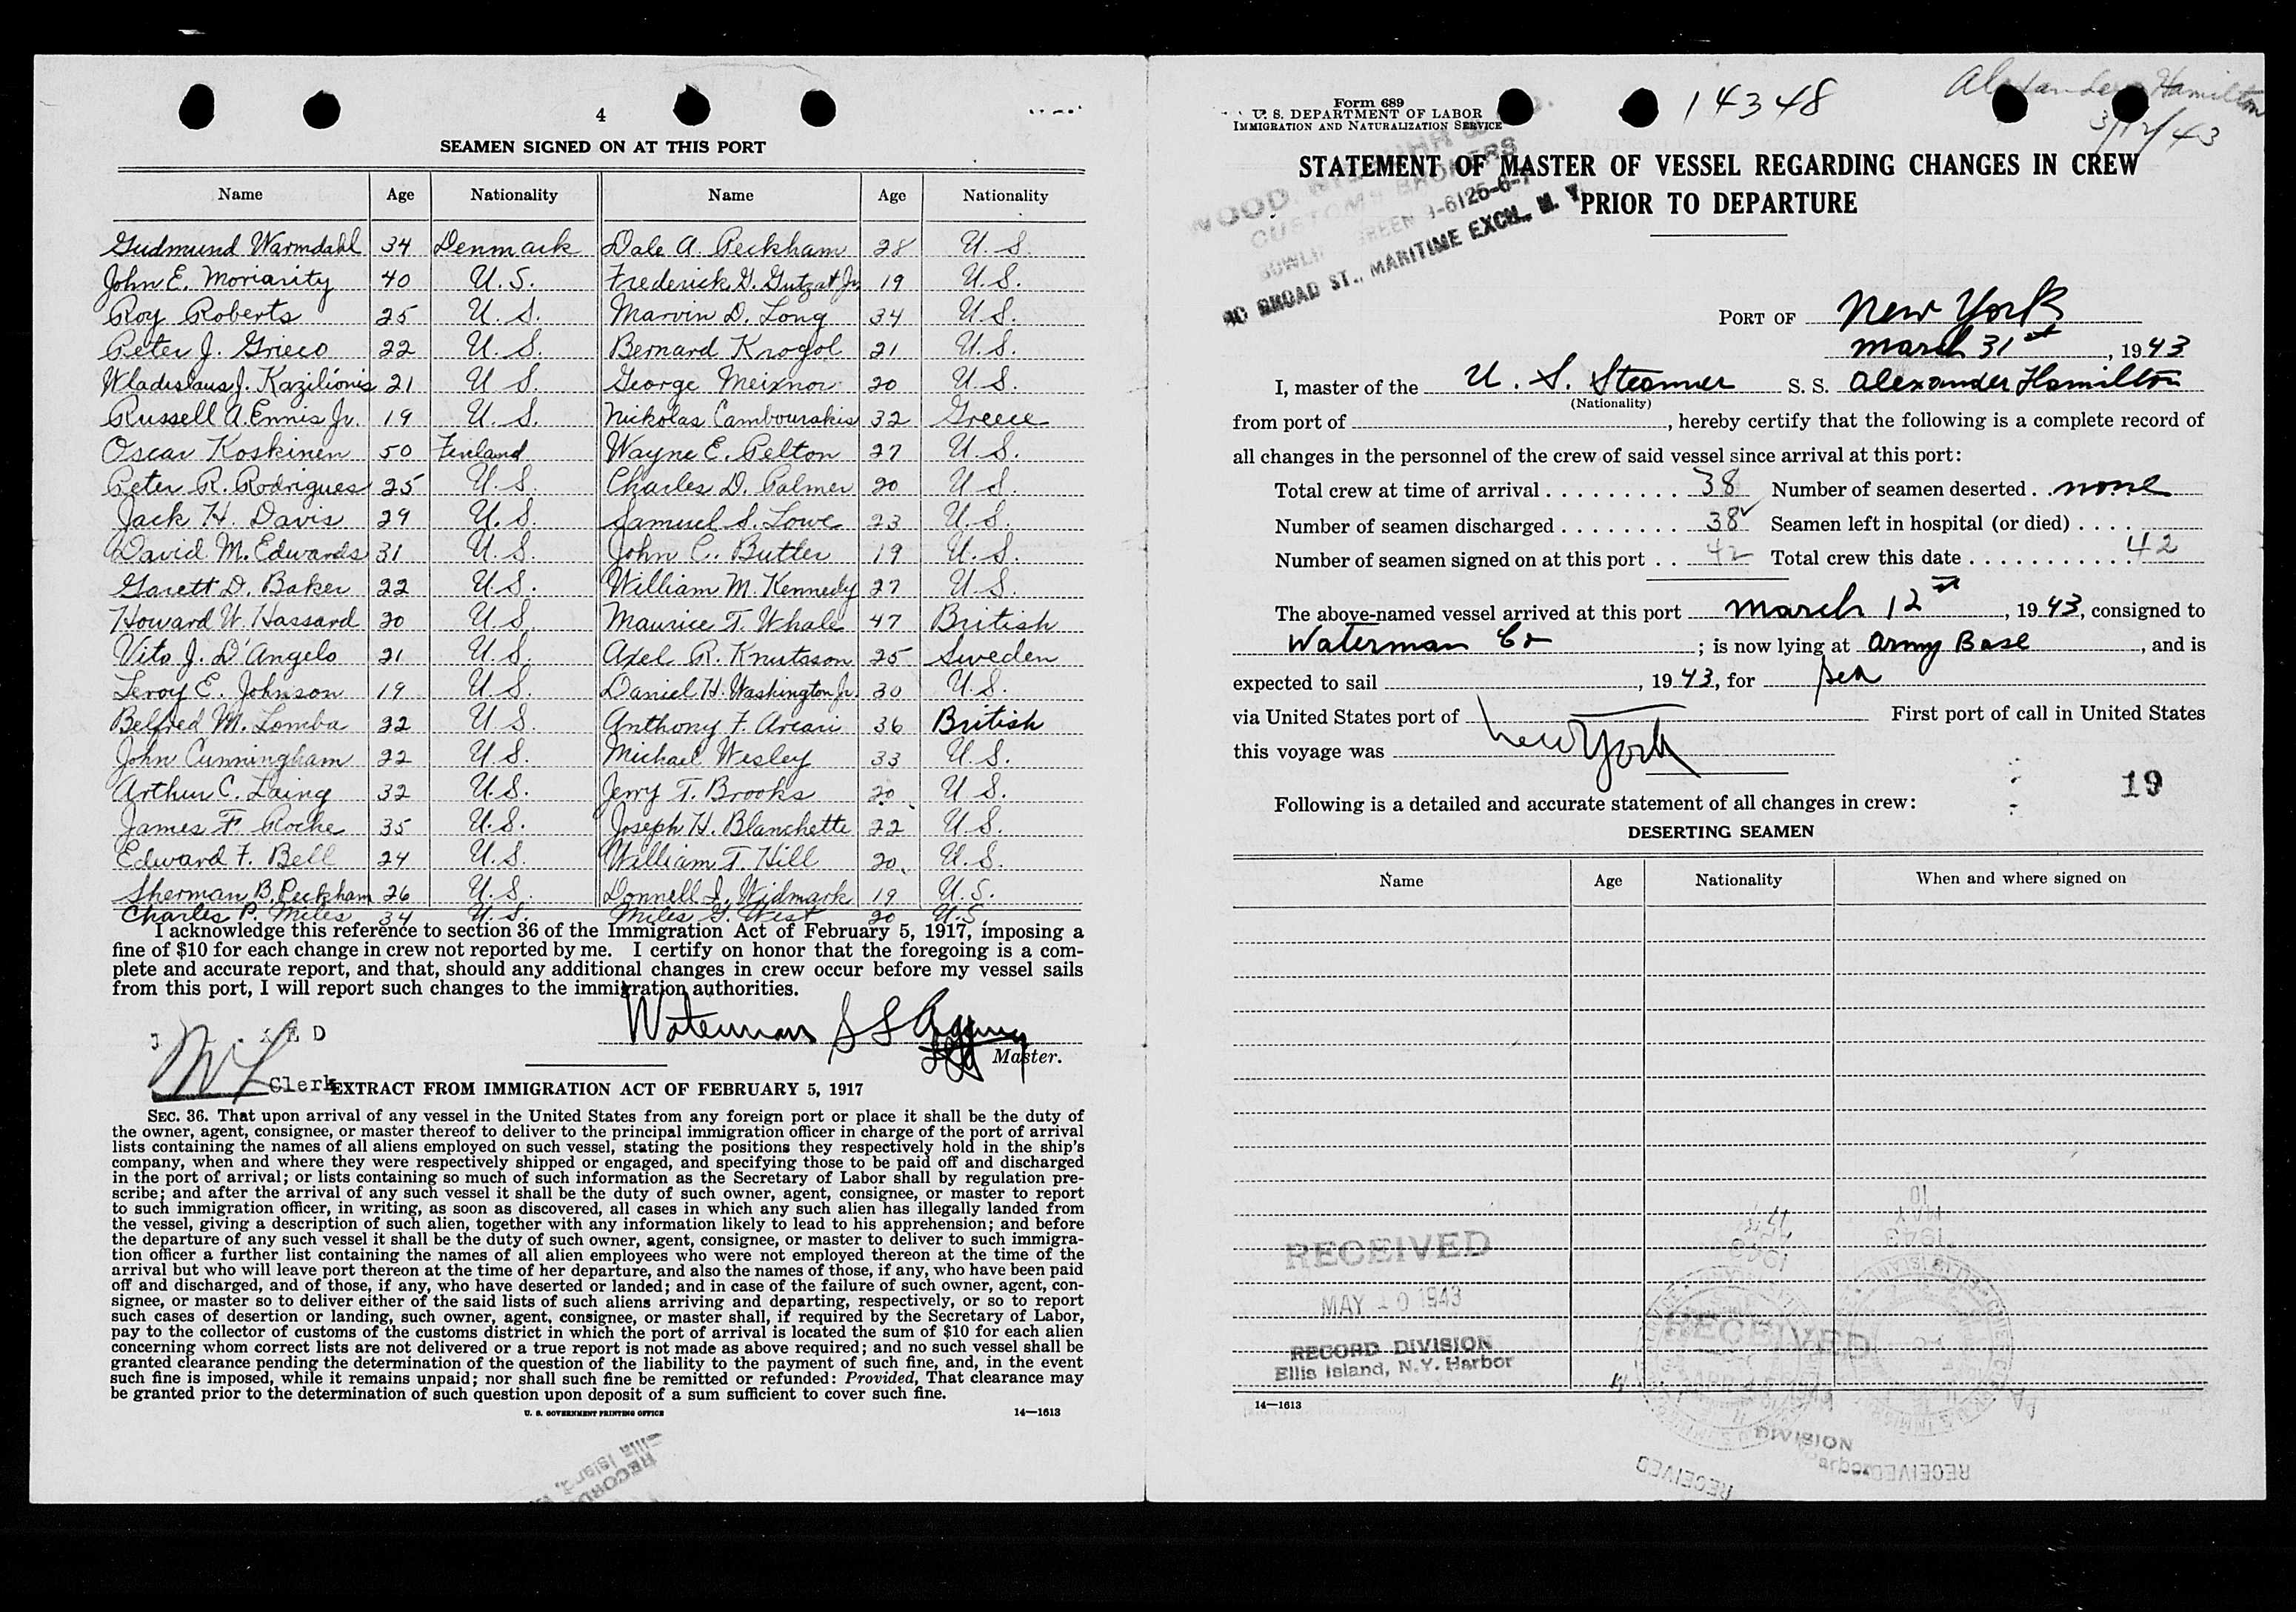 4
SEAMEN SIGNED ON AT THIS PORT
Name Age Nationality Name Age Nationality
Gudmund Warmdahl 34 Denmark Dale A. Peckham 28 U. S.
John E. Moriarity 40 U. S. Frederick G. Gutzat Jr. 19 U. S.
Roy Roberts 25 U. S. Marvin D. Long 34 U. S.
Peter J. Grieco 22 U. S. Bernard Krogol 21 U. S.
Wladislaus J. Kazilionis 21 U S. George Meixnor 20 U. S.
Russell A. Ennis Jr. 19 U. S. Nickolas Cambourakis 32 Greece
Oscar Koskinen 50 Finland Wayne E. Pelton 27 U. S.
Peter R. Rodrigues 25 U. S. Charles D. Palmer 20 U S.
Jack H. Davis 29 U. S. Samuel S. Lowe 23 U. S.
David M. Edwards 31 U. S. John C. Butler 19 U. S.
Garett D. Baker 22 U. S. William M. Kennedy 27 U S.
Howard W. Hassard 20 U S. Maurice T. Whale 47 British
Vito J. D'Angelo 21 U. S. Axel R. Knutsson 25 Sweden
Leroy E. Johnson 19 U. S. Daniel H. Washington Jr. 30 U. S.
Belfred M. Lomba 22 U S. Anthony F. Arcari 36 British
John Cunningham 22 U S. Michael Wesley 33 U. S.
Arthur C. Laing 32 U. S. Jerry T. Brooks 20 U S.
James F. Roche 35 U. S. Joseph H. Blanchette 22 U S.
Edward F. Bell 24 U. S. William T. Hill 20 U. S.
Sherman B. Peckham 26 U. S. Donnell I. Widmark 19 U. S.
Charles P. Miles 34 U. S. Miles G. West 20 U. S.
I acknowledge this reference to section 36 of the Immigration Act of February 5, 1917, imposing a
fine of $10 for each change in crew not reported by me. I certify on honor that the foregoing is a com-
plete and accurate report, and that, should any additional changes in crew occur before my vessel sails
from this port, I will report such changes to the immigration authorities.
Waterman S S Agency
Master.
Clerk
EXTRACT FROM IMMIGRATION ACT OF FEBRUARY 5, 1917
SEC. 36. That upon arrival of any vessel in the United States from any foreign port or place it shall be the duty of
the owner, agent, consignee, or master thereof to deliver to the principal immigration officer in charge of the port of arrival
lists containing the names of all aliens employed on such vessel, stating the positions they respectively hold in the ship's
company, when and where they were respectively shipped or engaged, and specifying those to be paid off and discharged
in the port of arrival; or lists containing so much of such information as the Secretary of Labor shall by regulation pre-
scribe; and after the arrival of any such vessel it shall be the duty of such owner, agent, consignee, or master to report
to such immigration officer, in writing, as soon as discovered, all cases in which any such alien has illegally landed from
the vessel, giving a description of such alien, together with any information likely to lead to his apprehension; and before
the departure of any such vessel it shall be the duty of such owner, agent, consignee, or master to deliver to such immigra-
tion officer a further list containing the names of all alien employees who were not employed thereon at the time of the
arrival but who will leave port thereon at the time of her departure, and also the names of those, if any, who have been paid
off and discharged, and of those, if any, who have deserted or landed; and in case of the failure of such owner, agent, con-
signee, or master so to deliver either of the said lists of such aliens arriving and departing, respectively, or so to report
such cases of desertion or landing, such owner, agent, consignee, or master shall, if required by the Secretary of Labor,
pay to the collector of customs of the customs district in which the port of arrival is located the sum of $10 for each alien
concerning whom correct lists are not delivered or a true report is not made as above required; and no such vessel shall be
granted clearance pending the determination of the question of the liability to the payment of such fine, and, in the event
such fine is imposed, while it remains unpaid; nor shall such fine be remitted or refunded: Provided, That clearance may
be granted prior to the determination of such question upon deposit of a sum sufficient to cover such fine.
U. S. GOVERNMENT PRINTING OFFICE 14—1613
Form 689
U. S. DEPARTMENT OF LABOR
IMMIGRATION AND NATURALIZATION SERVICE
14348
Alexander Hamilton
3/12/43
STATEMENT OF MASTER OF VESSEL REGARDING CHANGES IN CREW
PRIOR TO DEPARTURE
CUSTOMS BROKERS
40 BROAD ST., MARITIME EXCH., N. Y.
PORT OF New York
March 31st, 1943
I, master of the U. S. Steamer S. S. Alexander Hamilton
(Nationality)
from port of , hereby certify that the following is a complete record of
all changes in the personnel of the crew of said vessel since arrival at this port:
Total crew at time of arrival 38 Number of seamen deserted none
Number of seamen discharged 38 Seamen left in hospital (or died)
Number of seamen signed on at this port 42 Total crew this date 42
The above-named vessel arrived at this port March 12st, 1943, consigned to
Waterman Co ; is now lying at Army Base, and is
expected to sail , 1943, for Sea
via United States port of First port of call in United States
this voyage was New York
19
Following is a detailed and accurate statement of all changes in crew:
DESERTING SEAMEN
Name Age Nationality When and where signed on
RECEIVED
MAY 10 1943
RECORD DIVISION
Ellis Island, N.Y. Harbor
RECEIVED
DIVISION
14—1613
RECEIVED
RECEIVED